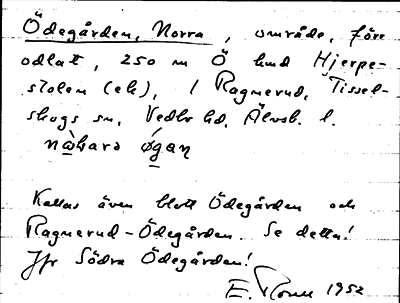 Ödegården, Norra, område, förr
odlat, 250 m Ö hmd Hjerpe-
stolen (ek), / Ragnerud, Tissel-
skogs sn, Vedbo hd, Älvsb. l.
nòhara ógan
Kallas även blott Ödegården och
Ragnerud-Ödegården. Se detta!
Jfr Södra Ödegården!
E. 1952